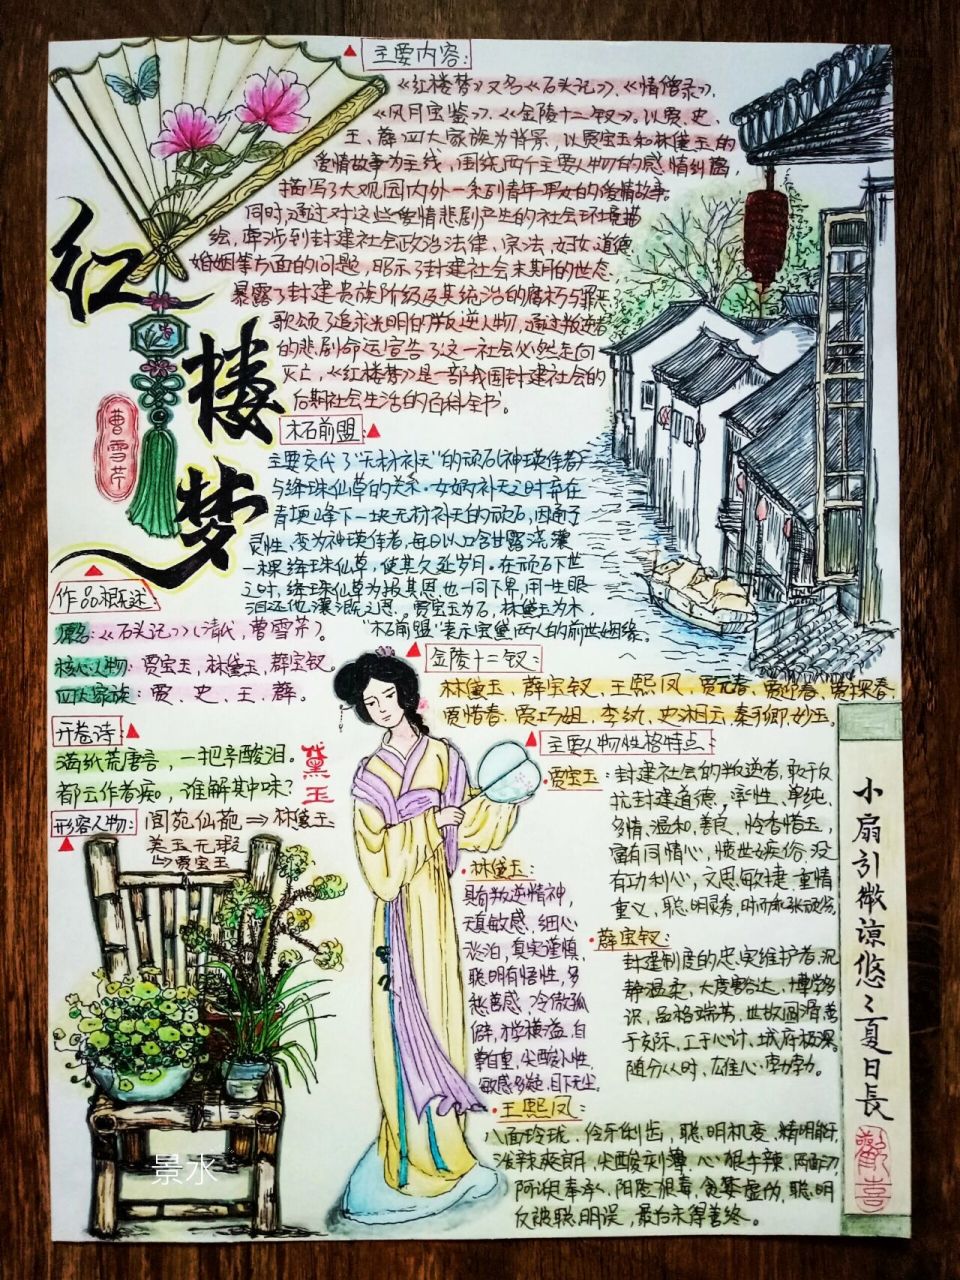 红
楼
梦
曹雪芹
主要内容:
《红楼梦》又名《石头记》、《情僧录》、
《风月宝鉴》、《金陵十二钗》。以贾、史、
王、薛四大家族为背景,以贾宝玉和林黛玉的
爱情故事为主线,围绕两个主要人物的感情纠葛,
描写了大观园内外一系列青年男女的爱情故事。
同时,通过对这些爱情悲剧产生的社会环境描
绘,牵涉到封建社会政治法律、宗法、妇女、道德
婚姻等方面的问题,昭示了封建社会末期的世态
暴露了封建贵族阶级及其统治的腐朽与罪恶
歌颂了追求光明的叛逆人物,通过叛逆者
的悲剧命运宣告了这一社会必然走向
灭亡,《红楼梦》是一部我国封建社会的
后期社会生活的百科全书。
木石前盟:
主要交代了"无材补天"的顽石(神瑛侍者)
与绛珠仙草的关系。女娲补天之时弃在
青埂峰下一块无材补天的顽石,因通了
灵性,变为神瑛侍者,每日以口含甘露浇灌
一棵绛珠仙草,使其久延岁月。在顽石下世
之时,绛珠仙草为报其恩也一同下界,用一生眼
泪还他灌溉之恩。贾宝玉为石,林黛玉为木,
"木石前盟"表示宝黛两人的前世姻缘。
作品概述:
原名:《石头记》(清代,曹雪芹)。
核心人物:贾宝玉,林黛玉,薛宝钗。
四大家族:贾、史、王、薛。
开卷诗:
满纸荒唐言,一把辛酸泪。
都云作者痴,谁解其中味?
形容人物:阆苑仙葩⇒林黛玉
美玉无瑕
⇒贾宝玉
黛玉
金陵十二钗:
林黛玉、薛宝钗、王熙凤、贾元春、贾迎春、贾探春、
贾惜春、贾巧姐、李纨、史湘云、秦可卿、妙玉。
主要人物性格特点:
贾宝玉:封建社会的叛逆者,敢于反
抗封建道德,率性、单纯、
多情、温和、善良、怜香惜玉,
富有同情心,愤世嫉俗,没
有功利心,文思敏捷,重情
重义、聪明灵秀,时而乖张顽劣。
林黛玉:
具有叛逆精神,
天真敏感、细心
淡泊,真实谨慎,
聪明有悟性,多
愁善感,冷傲孤
僻,才学横溢,自
尊自重,尖酸小性,
敏感多疑,目下无尘
薛宝钗:
封建制度的忠实维护者,沉
静温柔,大度豁达,博学多
识,品格端芳,世故圆滑,善
于交际,工于心计、城府极深。
随分从时,雄心勃勃。
王熙凤:
八面玲珑,伶牙俐齿,聪明机变,精明能干,
泼辣爽朗,尖酸刻薄,心狠手辣,两面三刀,
阿谀奉承,阳险狠毒,贪婪虚伪,聪明
反被聪明误,最为未得善终。
小扇引微凉悠〻夏日長
歡喜
景水